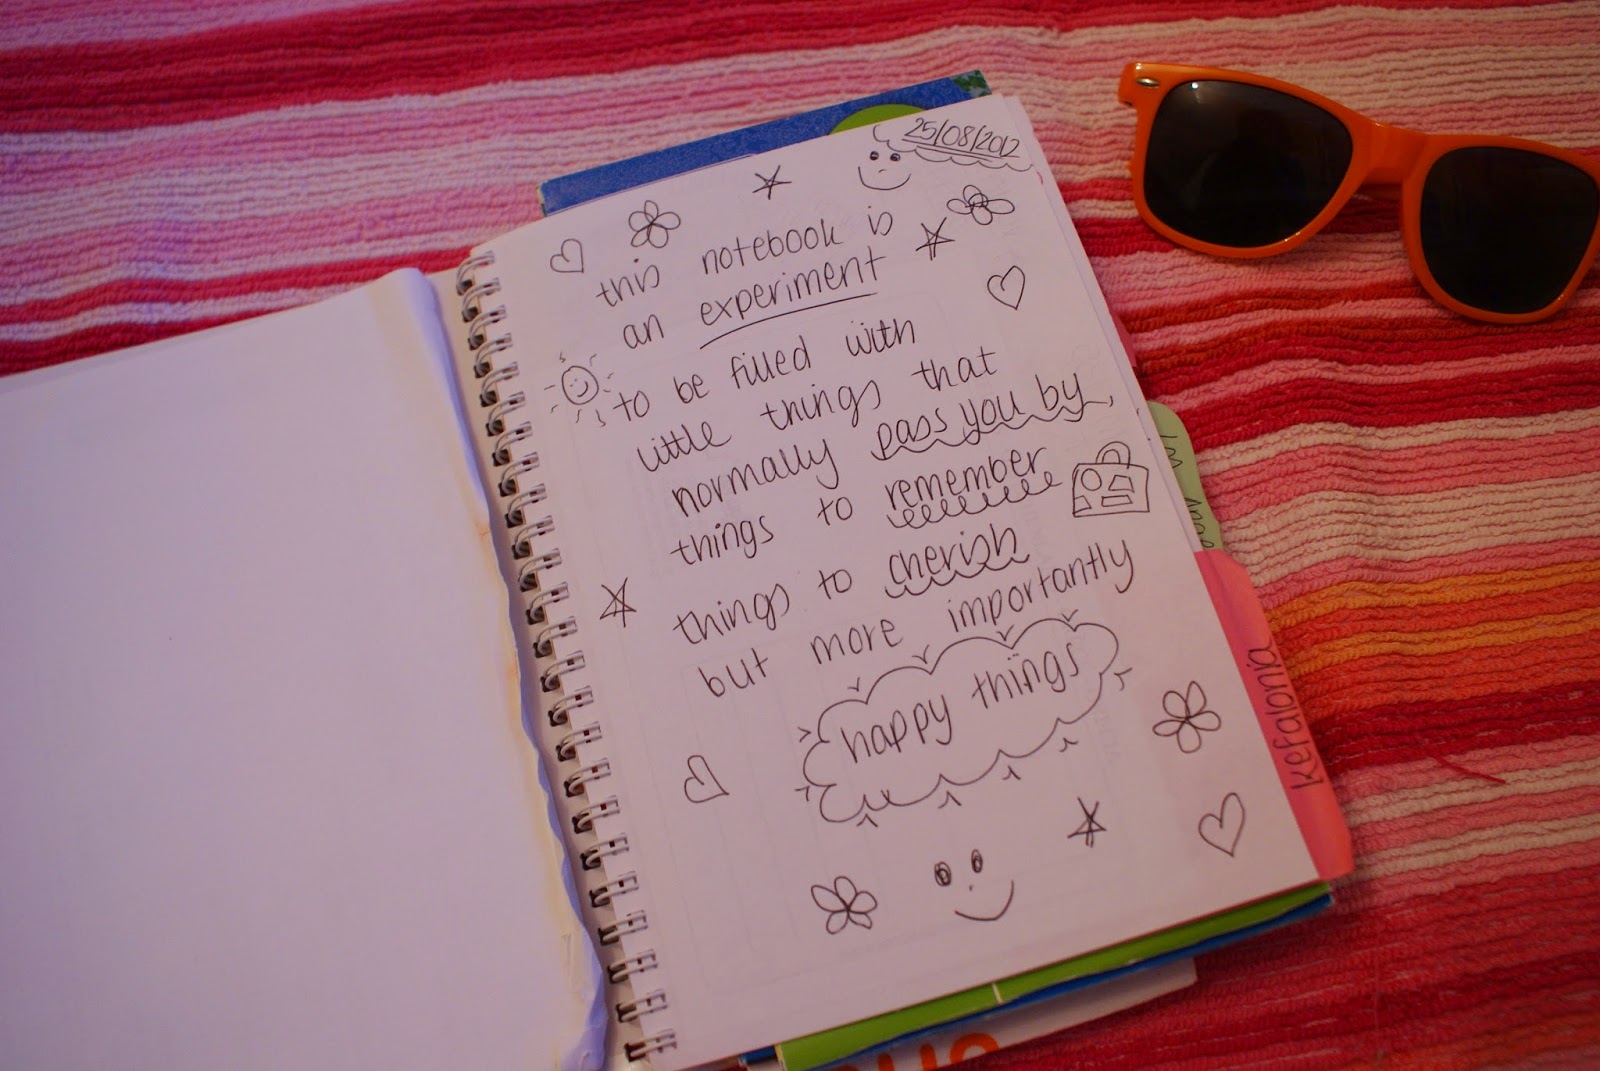 25/08/2012
this notebook is
an experiment
to be filled with
little things that
normally pass you by,
things to remember
things to cherish
but more importantly
happy things
kefalonia